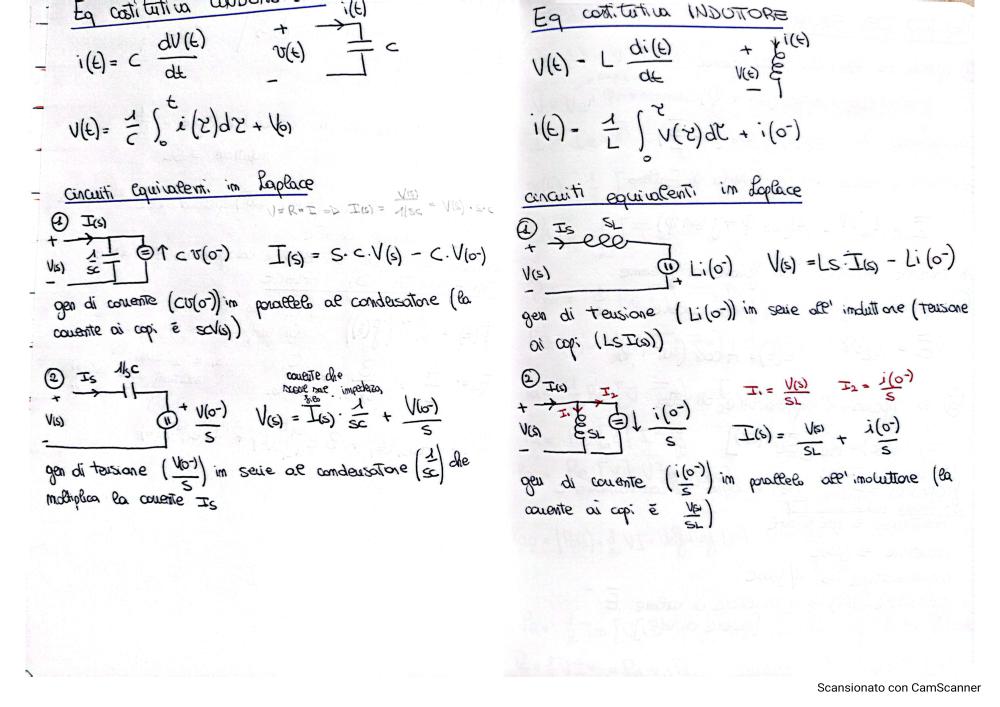 Eq costitutiva CONDENSATORE
i(t) = C dV(t)/dt
i(t)
+
v(t)
-
C
V(t) = 1/C ∫₀ᵗ i(τ)dτ + V(0)
circuiti equivalenti in Laplace
V = R • I => I(s) = V(s)/1/sc = V(s) · s·c
① I(s)
+
V(s)
-
1/sc
↑ C v(0-)
I(s) = s·C·V(s) - C·V(0-)
gen di corrente (CV(0-)) in parallelo al condensatore (la
corrente ai capi è sCV(s))
② Is 1/sC
+
V(s)
-
+ V(0-)/s
corrente che
scorre
impedenza
V(s) = I(s) · 1/sc + V(0-)/s
gen di tensione (V(0-)/s) in serie al condensatore (1/sc) che
moltiplica la corrente Is
Eq costitutiva INDUTTORE
V(t) = L di(t)/dt
+
V(t)
-
i(t)
i(t) = 1/L ∫₀^τ V(τ)dτ + i(0-)
circuiti equivalenti in Laplace
① Is SL
+
V(s)
-
+
Li(0-)
V(s) = LS·I(s) - Li(0-)
gen di tensione (Li(0-)) in serie all'induttore (tensione
ai capi (LSI(s)))
② I(s)
I₁ I₂
+
V(s)
-
SL
↓ i(0-)/s
I₁ = V(s)/SL I₂ = i(0-)/s
I(s) = V(s)/SL + i(0-)/s
gen di corrente (i(0-)/s) in parallelo all'induttore (la
corrente ai capi è V(s)/SL)
Scansionato con CamScanner